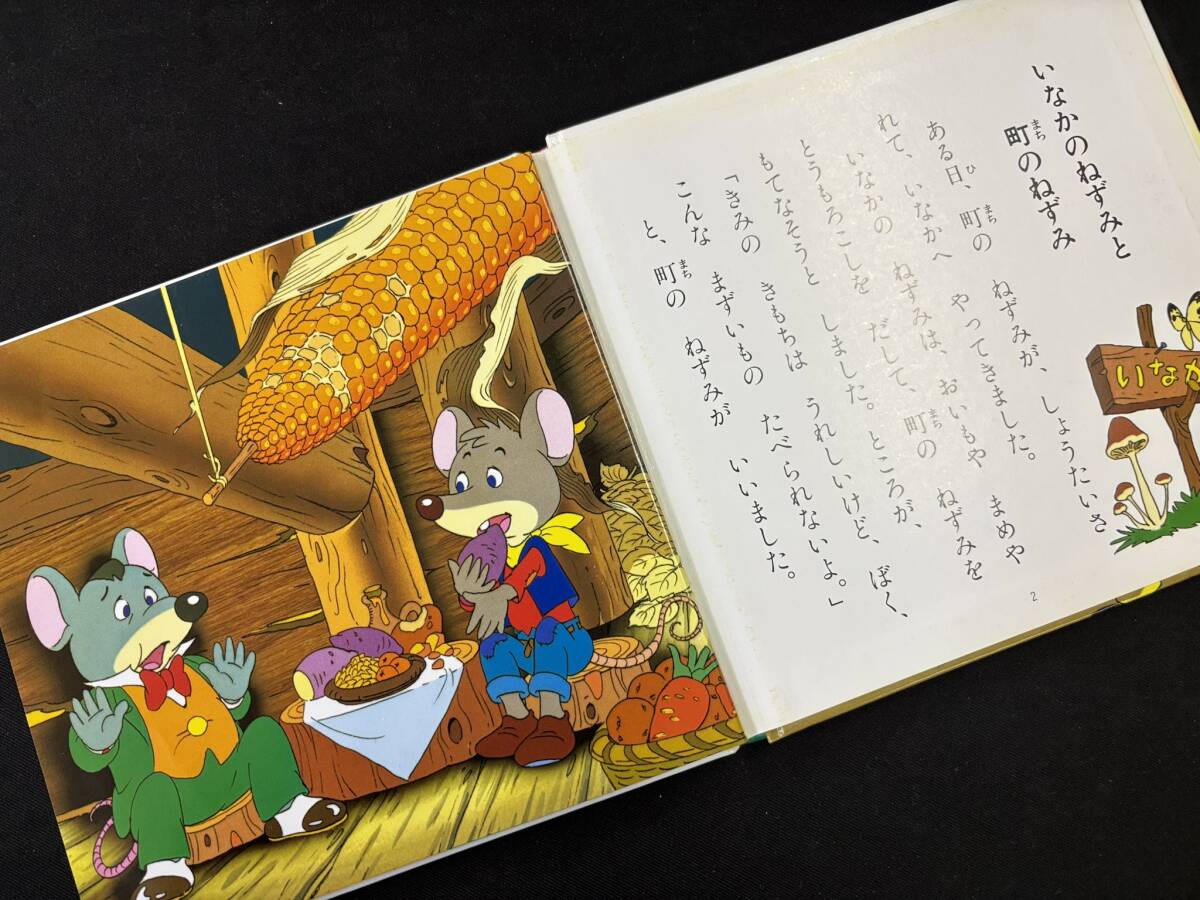 いなかのねずみと
町のねずみ
まち
ある日、町の ねずみが、しょうたいさ
ひ まち
れて、いなかへ やってきました。
いなかの ねずみは、おいもや まめや
とうもろこしを だして、町の ねずみを
まち
もてなそうと しました。ところが、
「きみの きもちは うれしいけど、ぼく、
こんな まずいもの たべられないよ。」
と、町の ねずみが いいました。
まち
2
いなか